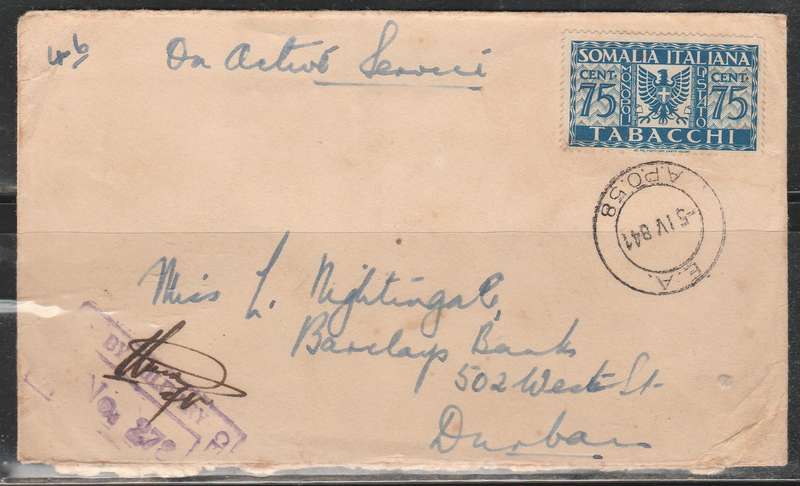 On Active Service
SOMALIA ITALIANA
CENT. CENT.
75 MONOPOLI DI STATO 75
TABACCHI
A.P.O. 58
-5 IV 841
E.A.
Miss L. Nightingale,
Barclays Bank
502 West St
Durban
BY
No. 272